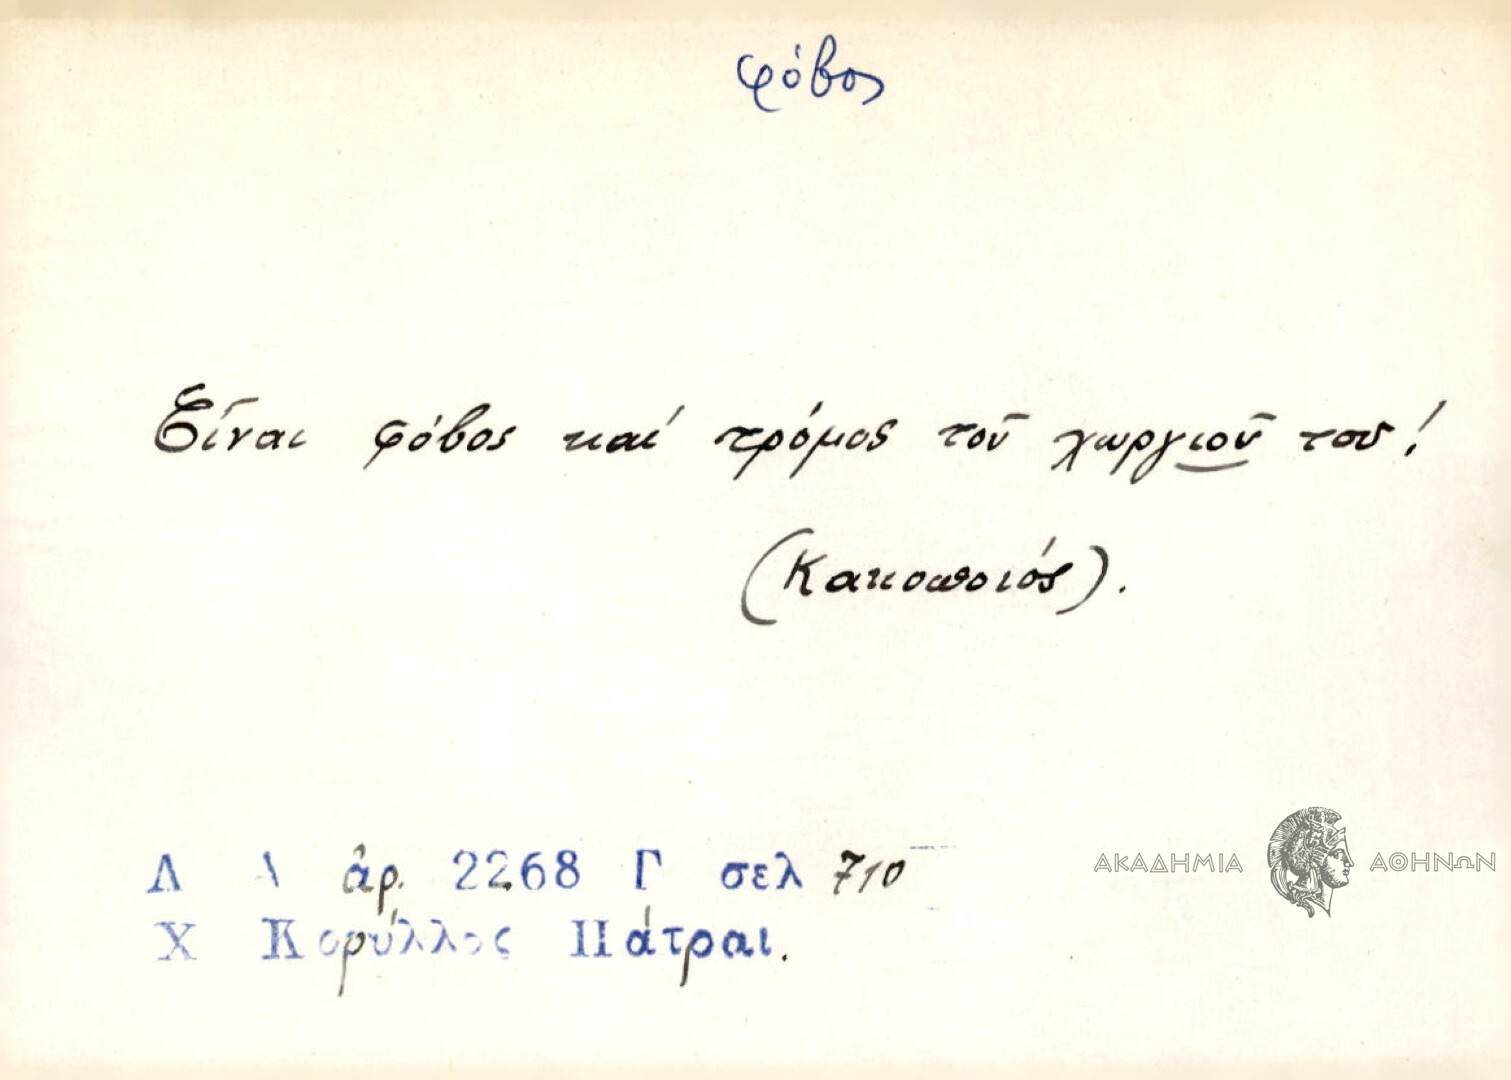 φόβος
Εἶναι φόβος καί τρόμος τοῦ χωργιοῦ του!
(Κακοποιός).
Λ Α ἀρ. 2268 Γ σελ 710
Χ Κορύλλος Πάτραι.
ΑΚΑΔΗΜΙΑ ΑΘΗΝΩΝ